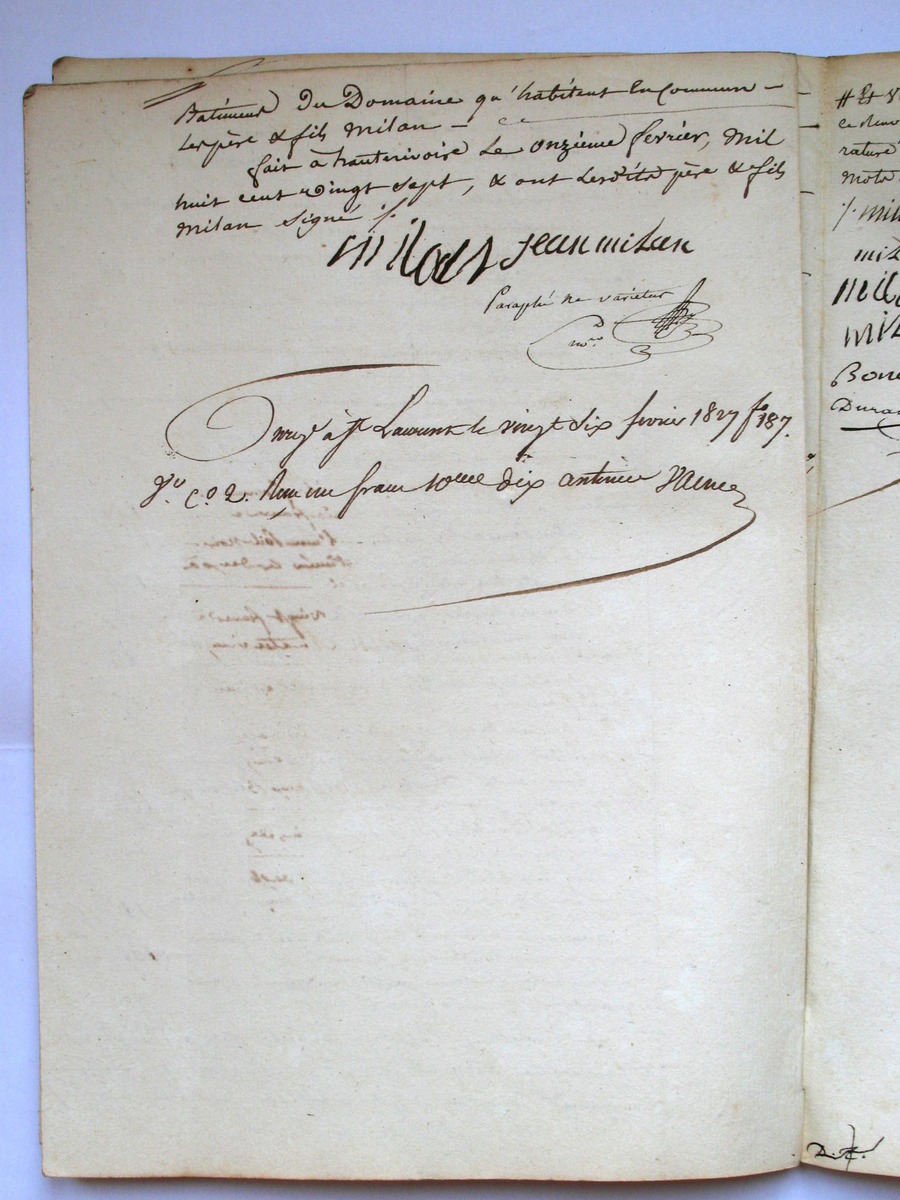 Batiment Du Domaine qu'habitent En Commun —
Les père & fils Milan —
fait à hauterivoire Le onzième fevrier, Mil
huit cent vingt sept, & ont Lesdits père & fils
Milan signé ./.
milan jean milan
Paraphé ne varietur
Enregé à St Laurent le vingt dix fevrier 1827 fo 187.
Vo Co 2. Reçu un franc dixme dix centimes
# Et
ce
rature
mots
./. mil
mil
mil
Bon
Duran
D. R.